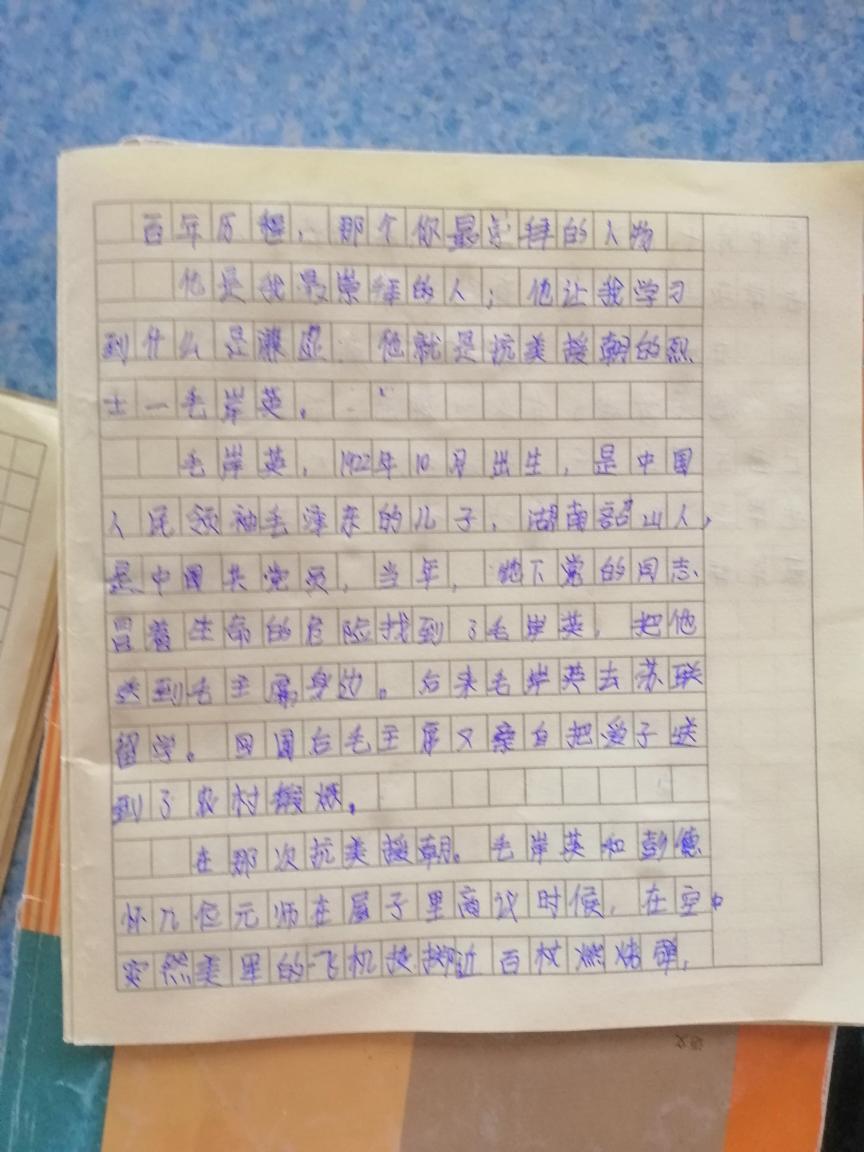 百年历程，那个你最崇拜的人物
他是我最崇拜的人；他让我学习
到什么是谦虚 他就是抗美援朝的烈
士一毛岸英。
毛岸英，1922年10月出生，是中国
人民领袖毛泽东的儿子，湖南韶山人，
是中国共党员，当年，地下党的同志
冒着生命的危险找到了毛岸英，把他
送到毛主席身边。后来毛岸英去苏联
留学。回国后毛主席又亲自把爱子送
到了农村锻炼。
在那次抗美援朝。毛岸英和彭德
怀几位元师在屋子里商议时候，在空中
突然美里的飞机投掷近百枚燃烧弹，
语文